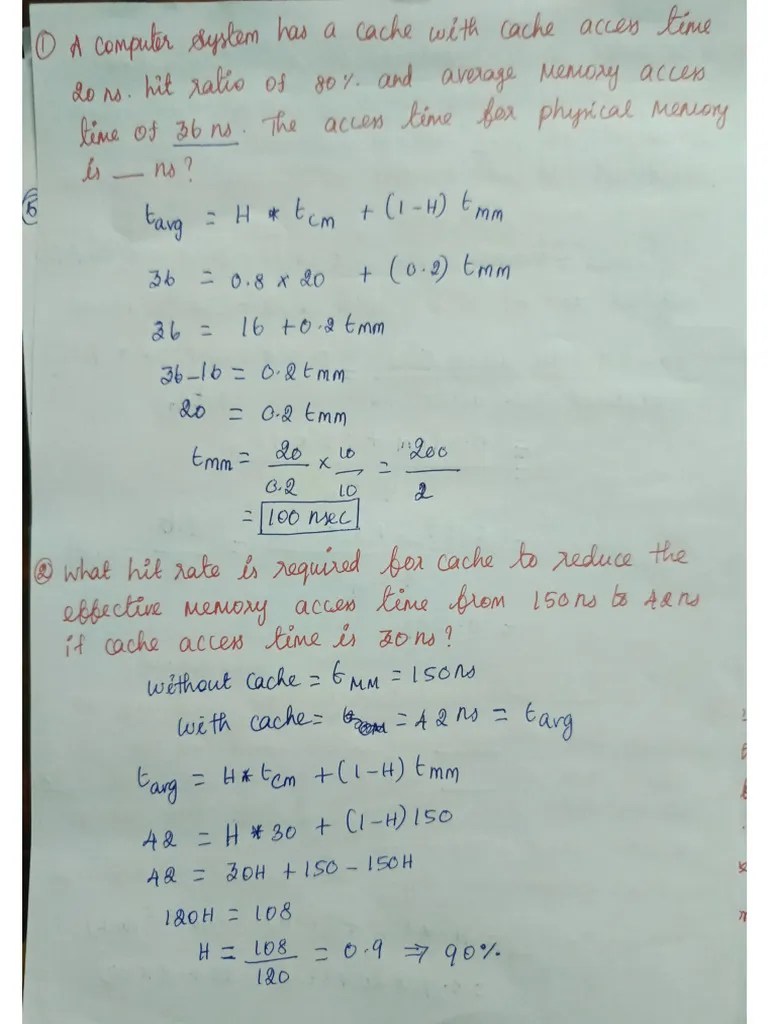 ① A computer system has a cache with cache access time
20 ns. hit ratio of 80% and average memory access
time of 36 ns. The access time for physical memory
is — ns?
t_avg = H * t_cm + (1-H) t_mm
36 = 0.8 x 20 + (0.2) t_mm
36 = 16 + 0.2 t_mm
36-16 = 0.2 t_mm
20 = 0.2 t_mm
t_mm = 20/0.2 x 10/10 = 200/2
= 100 nsec
② What hit rate is required for cache to reduce the
effective memory access time from 150 ns to 42 ns
if cache access time is 30 ns?
without cache = t_MM = 150 ns
with cache = = 42 ns = t_avg
t_avg = H * t_cm + (1-H) t_mm
42 = H * 30 + (1-H) 150
42 = 30H + 150 - 150H
120H = 108
H = 108/120 = 0.9 ⇒ 90%